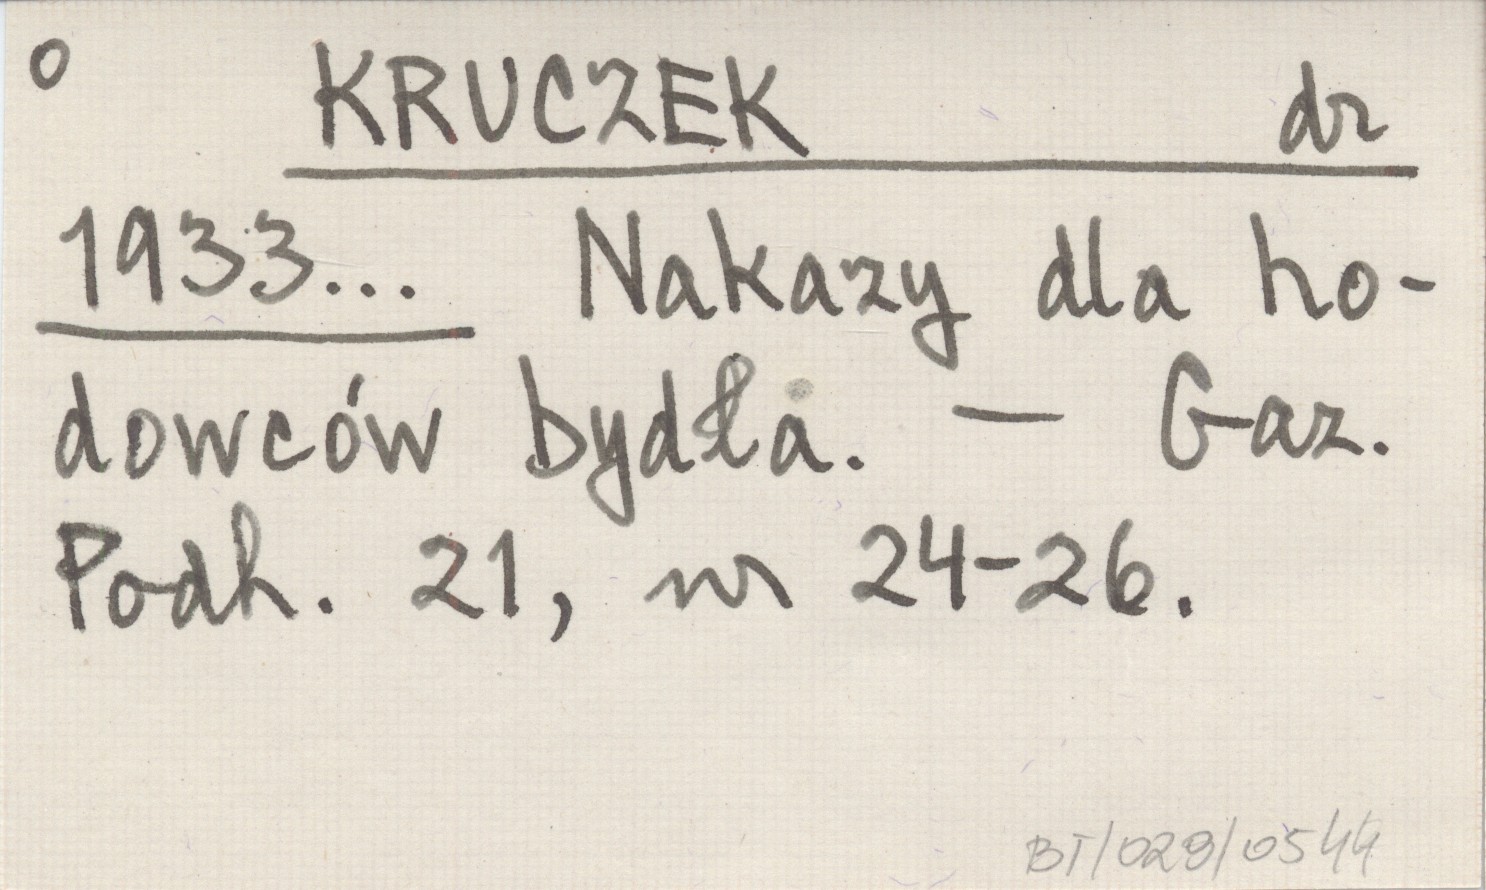 o KRUCZEK dr
1933... Nakazy dla ho-
dowców bydła. — Gaz.
Podh. 21, nr 24-26.
BT/029/0544